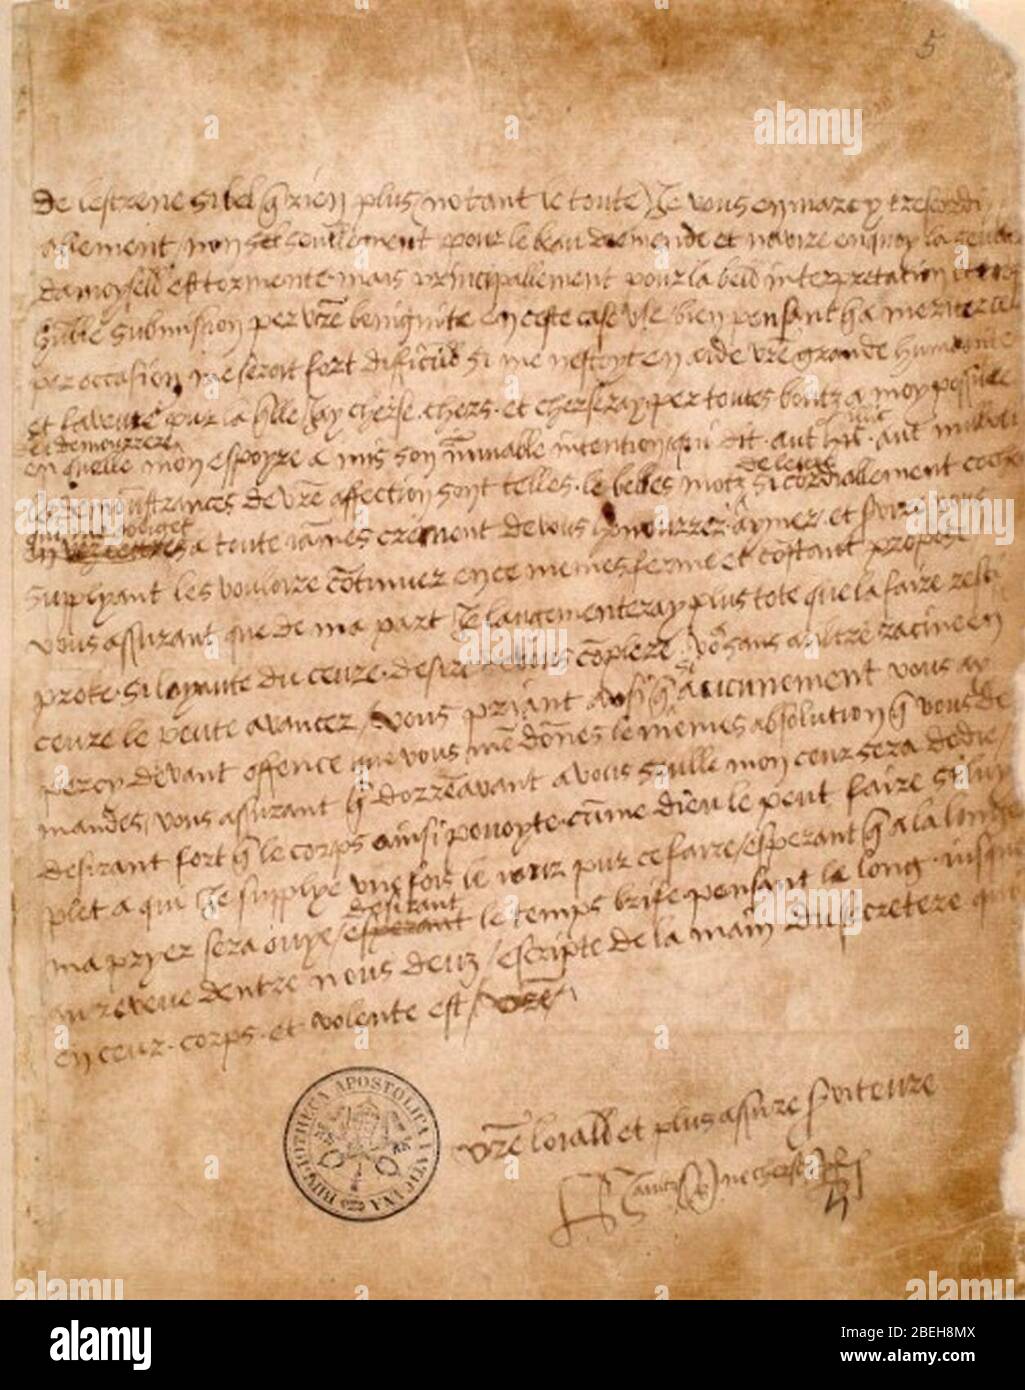 5
De lestrene si bel q̄ rien plus (notant le toute) Je vous en marcy tres cordi
allement, non seloeullement pour le beau diemende et navire en quoy la seulette
damoyselle est tormente mais principallement pour la belle interpretation et trop
huble submission per vr̄e benignite en ceste case use bien pensant q̄ a meriter cela
per occasion me seroit fort dificille si me nestoyt en aide vr̄e grande humanite
et laveure pour la q̄lle jay cherse chers et cherseray per toutes boutz a moy possible
ei demourrere
en quelle mon espoyre a mis son immuable intention qui dit aut illic aut nullibi
de letere
les demonstrances de vr̄e affection sont telles le belles motz si cordiallement couche
qui me obliget
a toute james cretment de vous honnourrer aymer et servire vous
supplyant les vouloire continuer en ce memes ferme et constant propose
vous assurant que de ma part Je laugementeray plus tote que la faire reci
proke si loyaute du ceure desireuse vous complere sans aultre racine en
ceure le peute avancer / vous priant ausi q̄ si aucunement vous ay
per cy devant offence que vous me donnes le memes absolution q̄ vous de
mandes / vous assurant q̄ dorrenavant a vous seulle mon ceur sera dedie /
desirant fort q̄ le corps ainsi pouoyte comme dieu le peut faire si luy
plet a qui Je supplye une fois le jour pur ce faire / esperant q̄ a la longe
desirant
ma pryer sera ouye / esperant le temps brife pensant le long jusque
au reveue dentre nous deuz / escripte de la main du secretere qui
en ceur corps et volente est / vr̄e
vr̄e loiall et plus assure serviteure
H autre ne cherse R
BIBLIOTHECA APOSTOLICA VATICANA
alamy
a
alamy
Image ID: 2BEH8MX
www.alamy.com